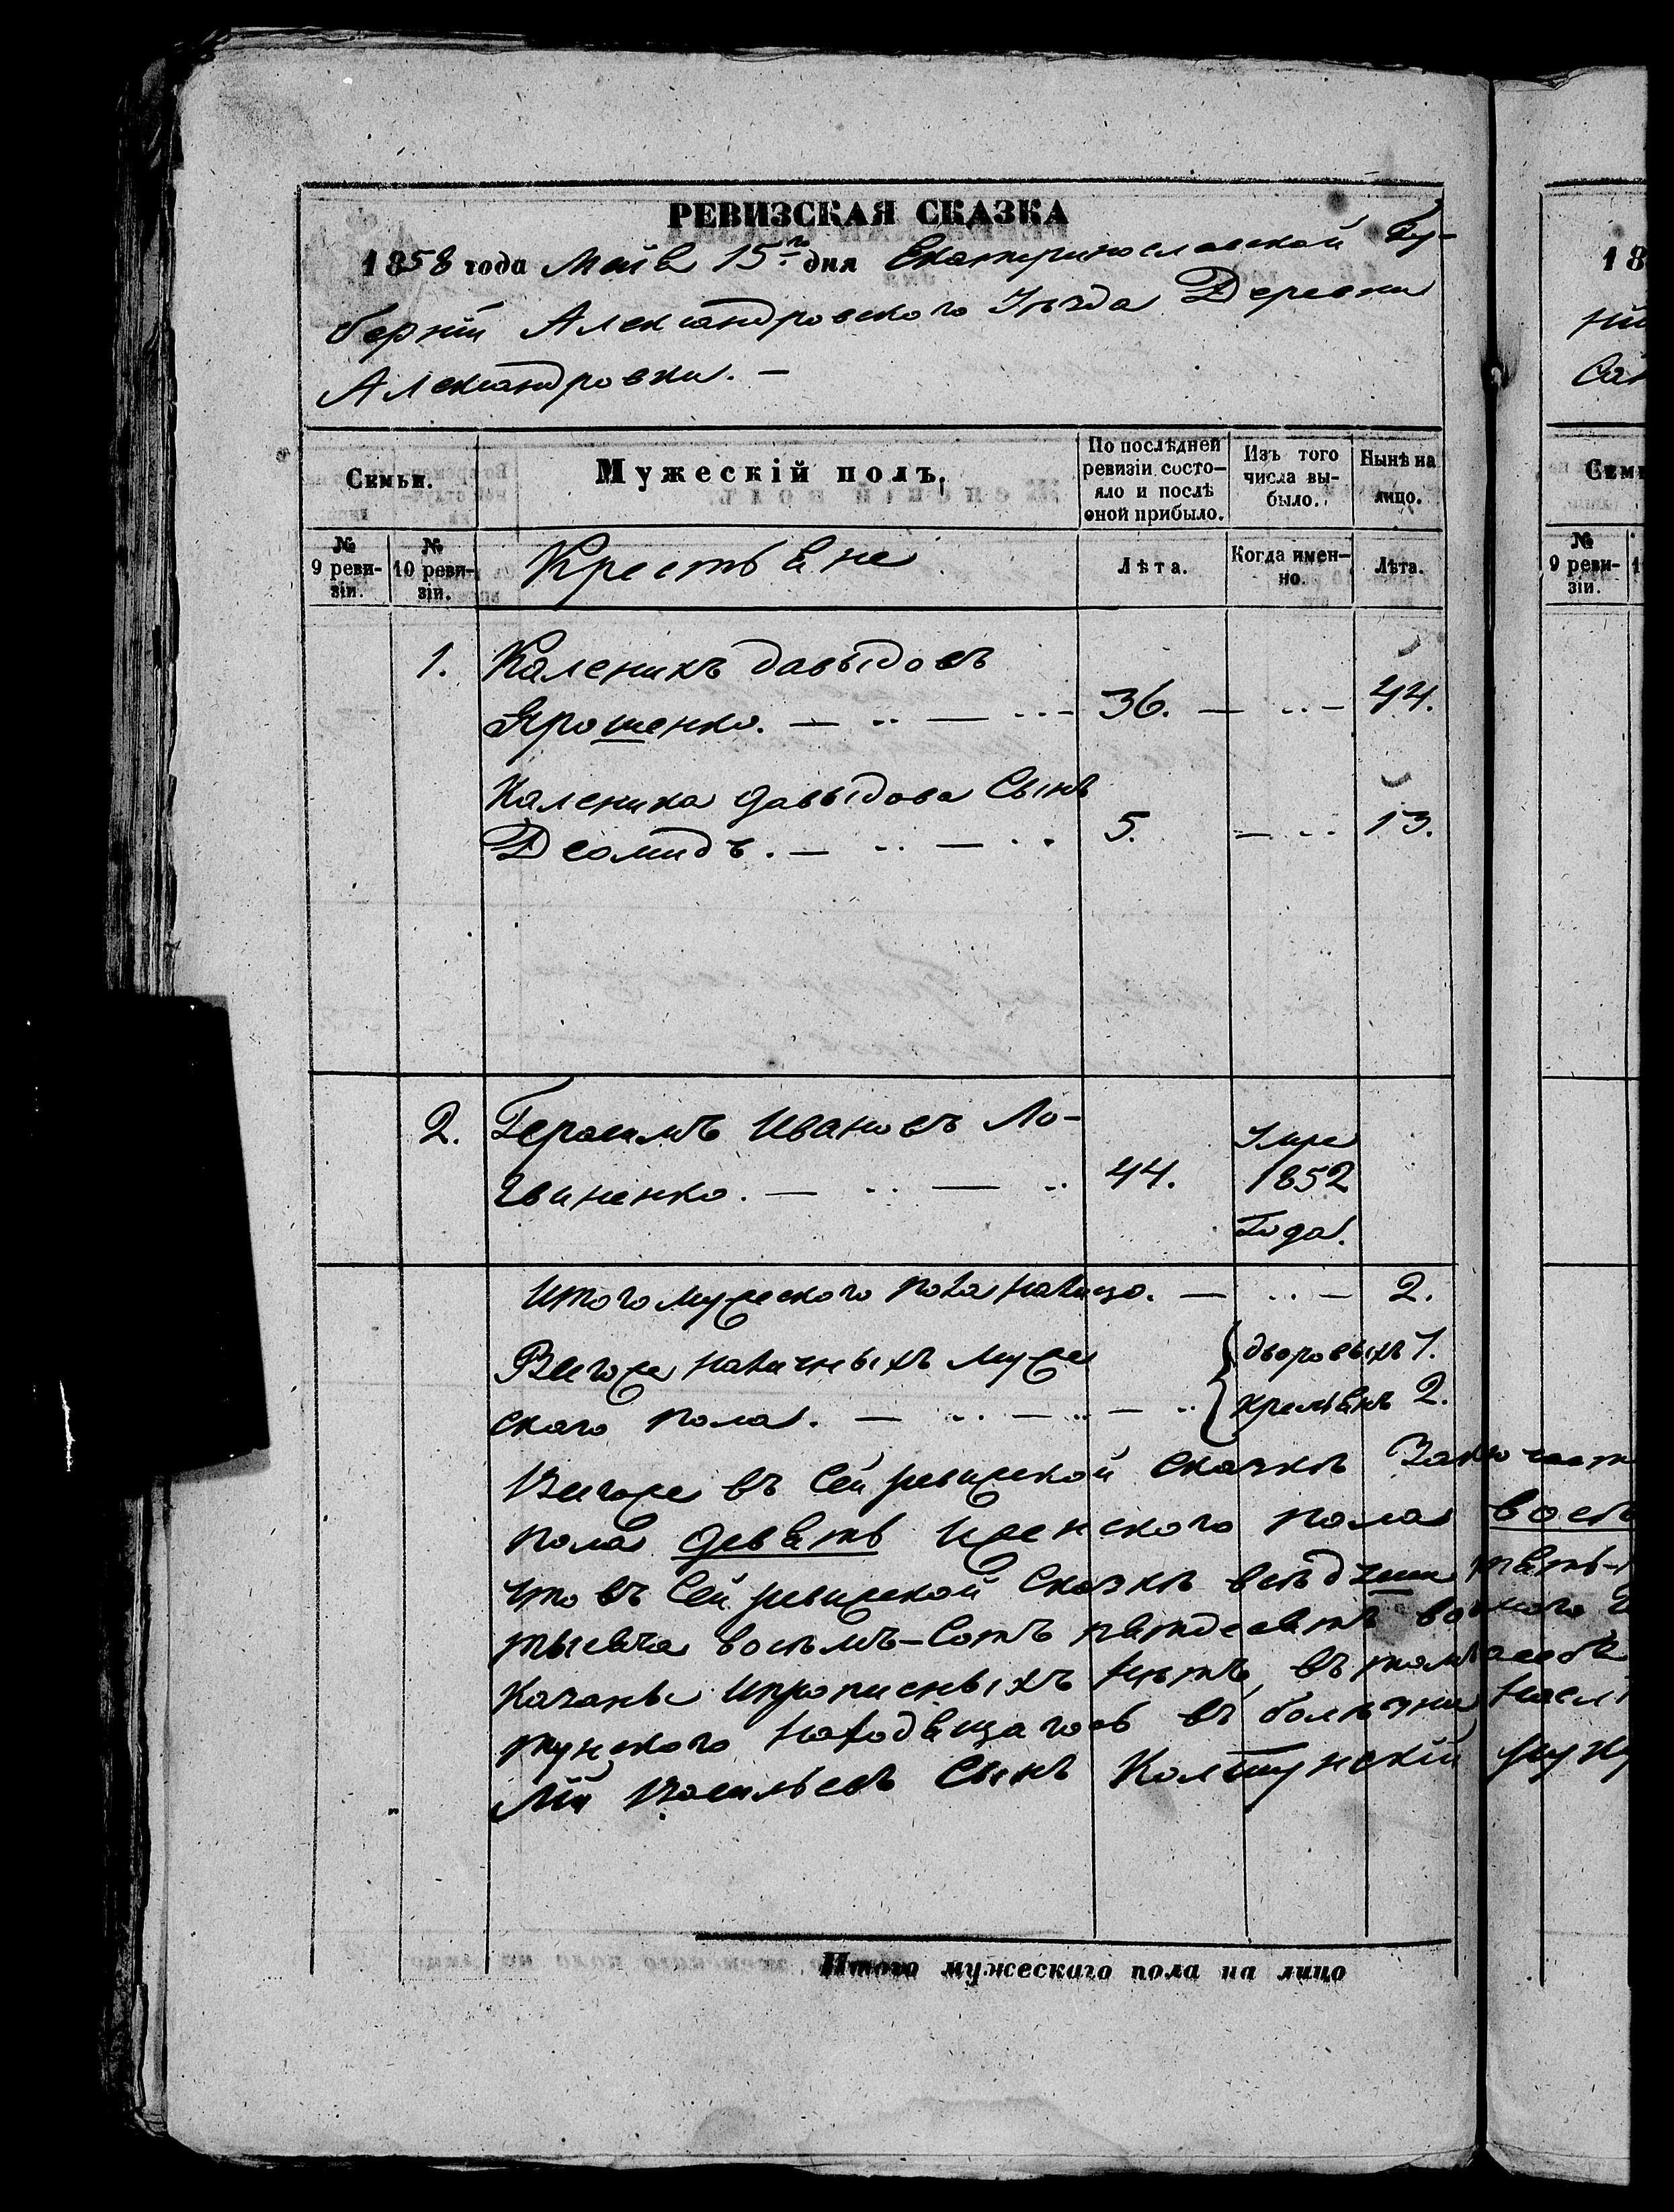 РЕВИЗСКАЯ СКАЗКА
1858 года Маія 15го дня Екатеринославской Гу-
берніи Александровского Уѣзда Деревни
Александровки. —
Семьи.
Мужескій полъ.
По послѣдней ревизіи состо-яло и послѣ оной прибыло.
Изъ того числа вы-было.
Нынѣ на лицо.
№ 9 реви-зіи.
№ 10 реви-зіи.
Крестьяне
Лѣта.
Когда имен-но.
Лѣта.
1. Каленикъ давыдовъ
Ярошенко. — .. — ... 36. — .. — 44.
Каленика давыдова Сынъ
Деомидъ. — .. — .. 5. — .. 13.
2. Герасимъ Ивановъ Ло-
гвиненко. — .. — .. 44.
Умре
1852
Года.
Итого мужеского пола налицо. — .. — 2.
Всего же наличныхъ муже
ского пола. — .. — .. — ..
дворовыхъ 7.
крестьянъ 2.
Всего же въ Сей ревизской Сказкѣ Заключает
пола девять Женского пола восе
что въ Сей ревизской Сказкѣ
тысяча восемь-Сотъ пятдесятъ
и прописныхъ нѣтъ, въ томъ
тунского находящагося въ болѣзни
лій Васильевъ Сынъ Колтунскій руку
Итого мужескаго пола на лицо
18
ни
Сан
Семь
№ 9 реви-зіи.